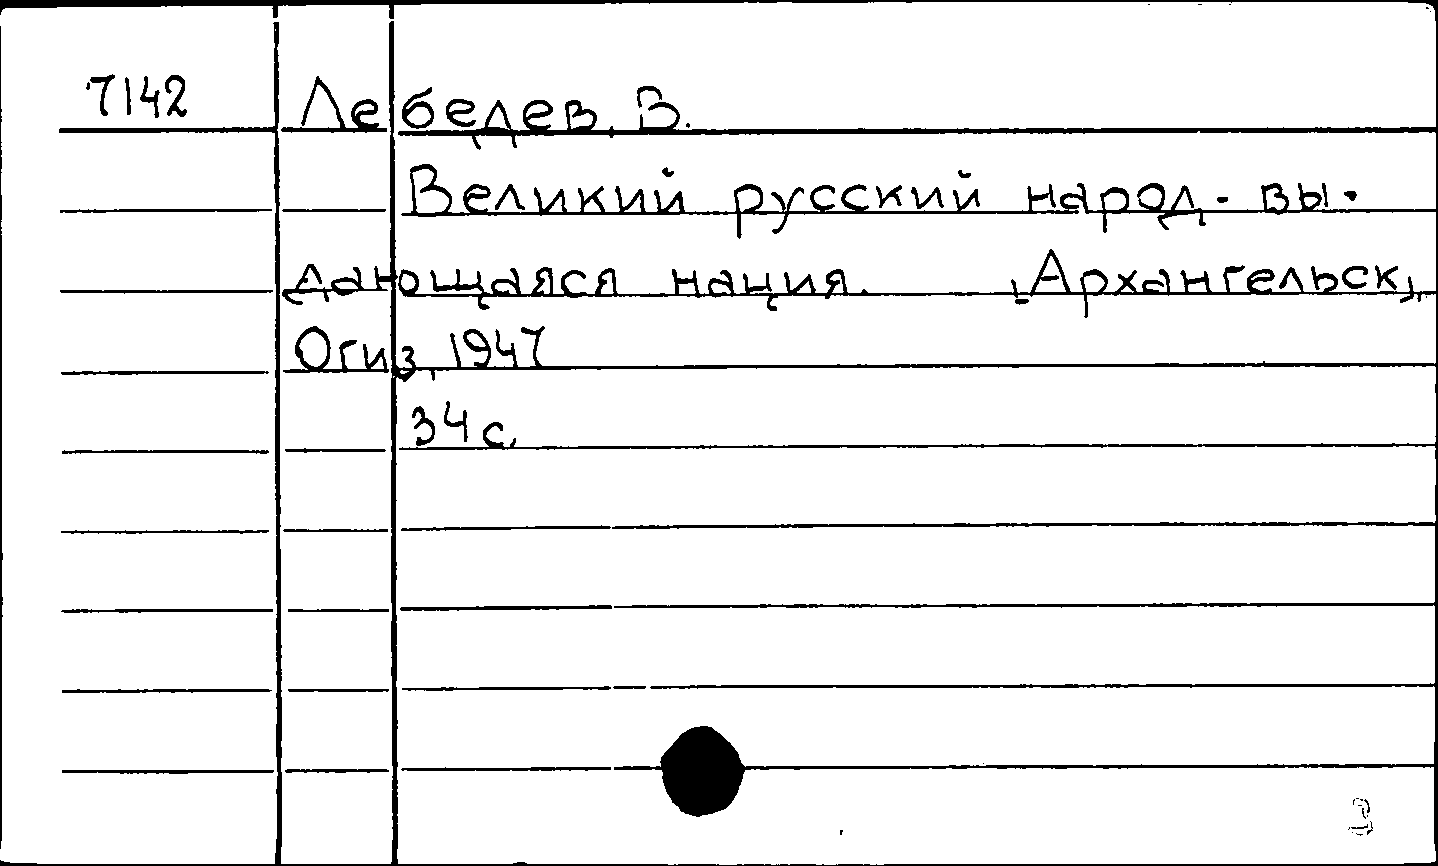 7142 Лебедев, В.
Великий русский народ - вы-
дающаяся нация. [Архангельск],
Огиз, 1947
34 с.